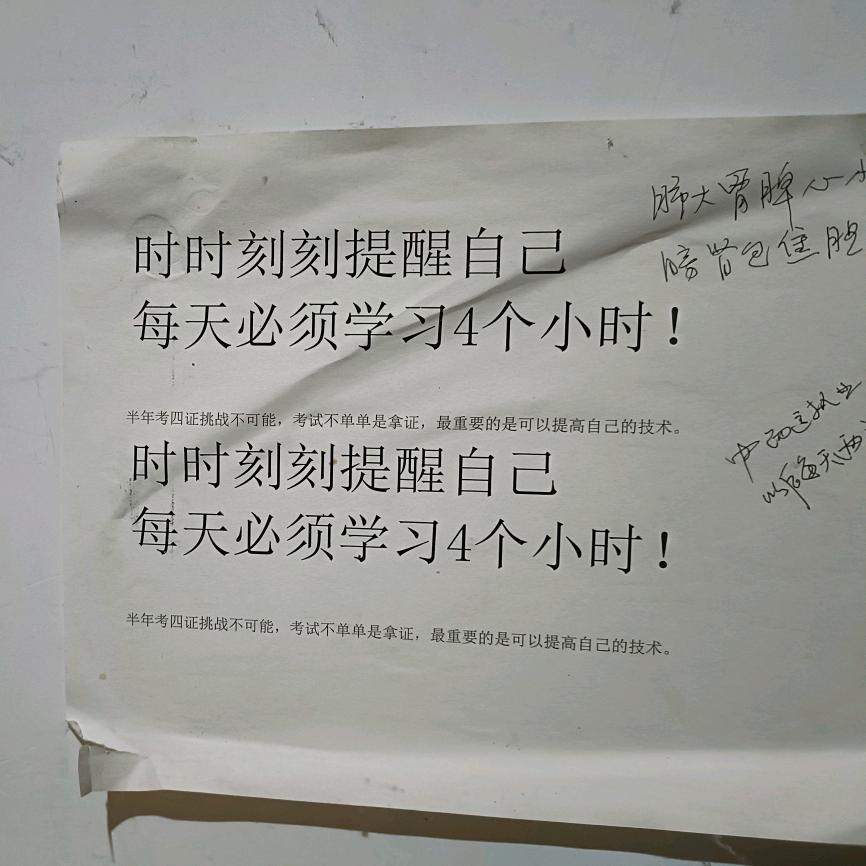 肺大胃脾心小
膀肾包焦胆
时时刻刻提醒自己
每天必须学习4个小时！
半年考四证挑战不可能，考试不单单是拿证，最重要的是可以提高自己的技术。
时时刻刻提醒自己
每天必须学习4个小时！
以后每天两
半年考四证挑战不可能，考试不单单是拿证，最重要的是可以提高自己的技术。